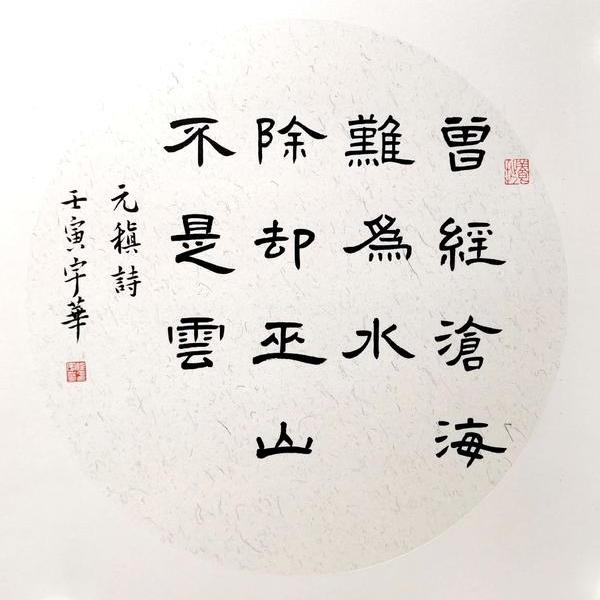 曾經滄海
難為水
除却巫山
不是雲
元稹詩
壬寅宇華